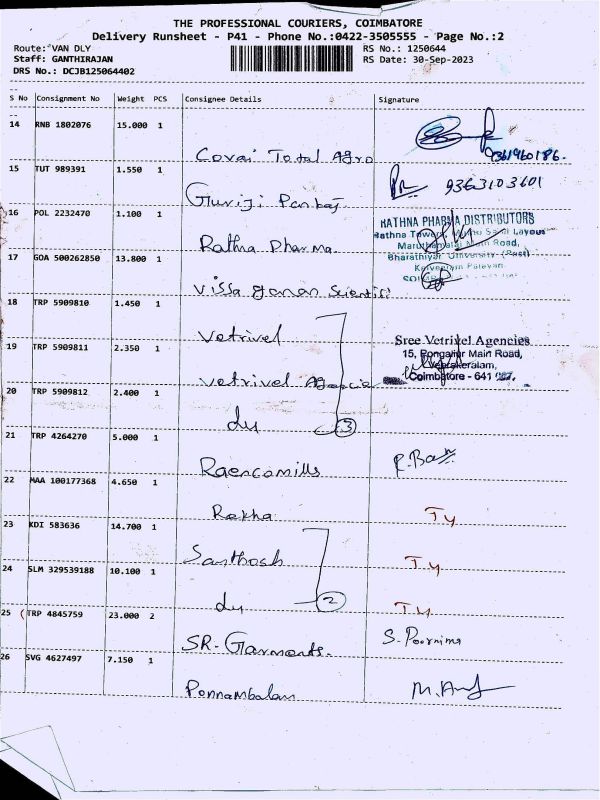 THE PROFESSIONAL COURIERS, COIMBATORE
Delivery Runsheet - P41 - Phone No.:0422-3505555 - Page No.:2
Route: VAN DLY RS No.: 1250644
Staff: GANTHIRAJAN RS Date: 30-Sep-2023
DRS No.: DCJB125064402
S No Consignment No Weight PCS Consignee Details Signature
14 RNB 1802076 15.000 1
Covai Total Agro 9361960186.
15 TUT 989391 1.550 1
Guruji Pankaj 9363103601
16 POL 2232470 1.100 1
RATHNA PHARMA DISTRIBUTORS
Rathna Pharma
Maruthamalai Main Road,
17 GOA 500262850 13.800 1
Bharathiyar University (Post)
Kalveeram Palayam,
18 TRP 5909810 1.450 1
Vetrivel
Sree Vetrivel Agencies
19 TRP 5909811 2.350 1
15, Main Road,
Vetrivel
Coimbatore - 641
20 TRP 5909812 2.400 1
3
21 TRP 4264270 5.000 1
22 MAA 100177368 4.650 1
Rekha Ty
23 KDI 583636 14.700 1
Santhosh Ty
24 SLM 329539188 10.100 1
2 Ty
25 TRP 4845759 23.000 2
SR- Garments. S. Poornima
26 SVG 4627497 7.150 1
Ponnambalam